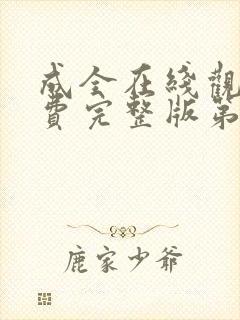 成全在綫觀
費完整版第
鹿家少爺